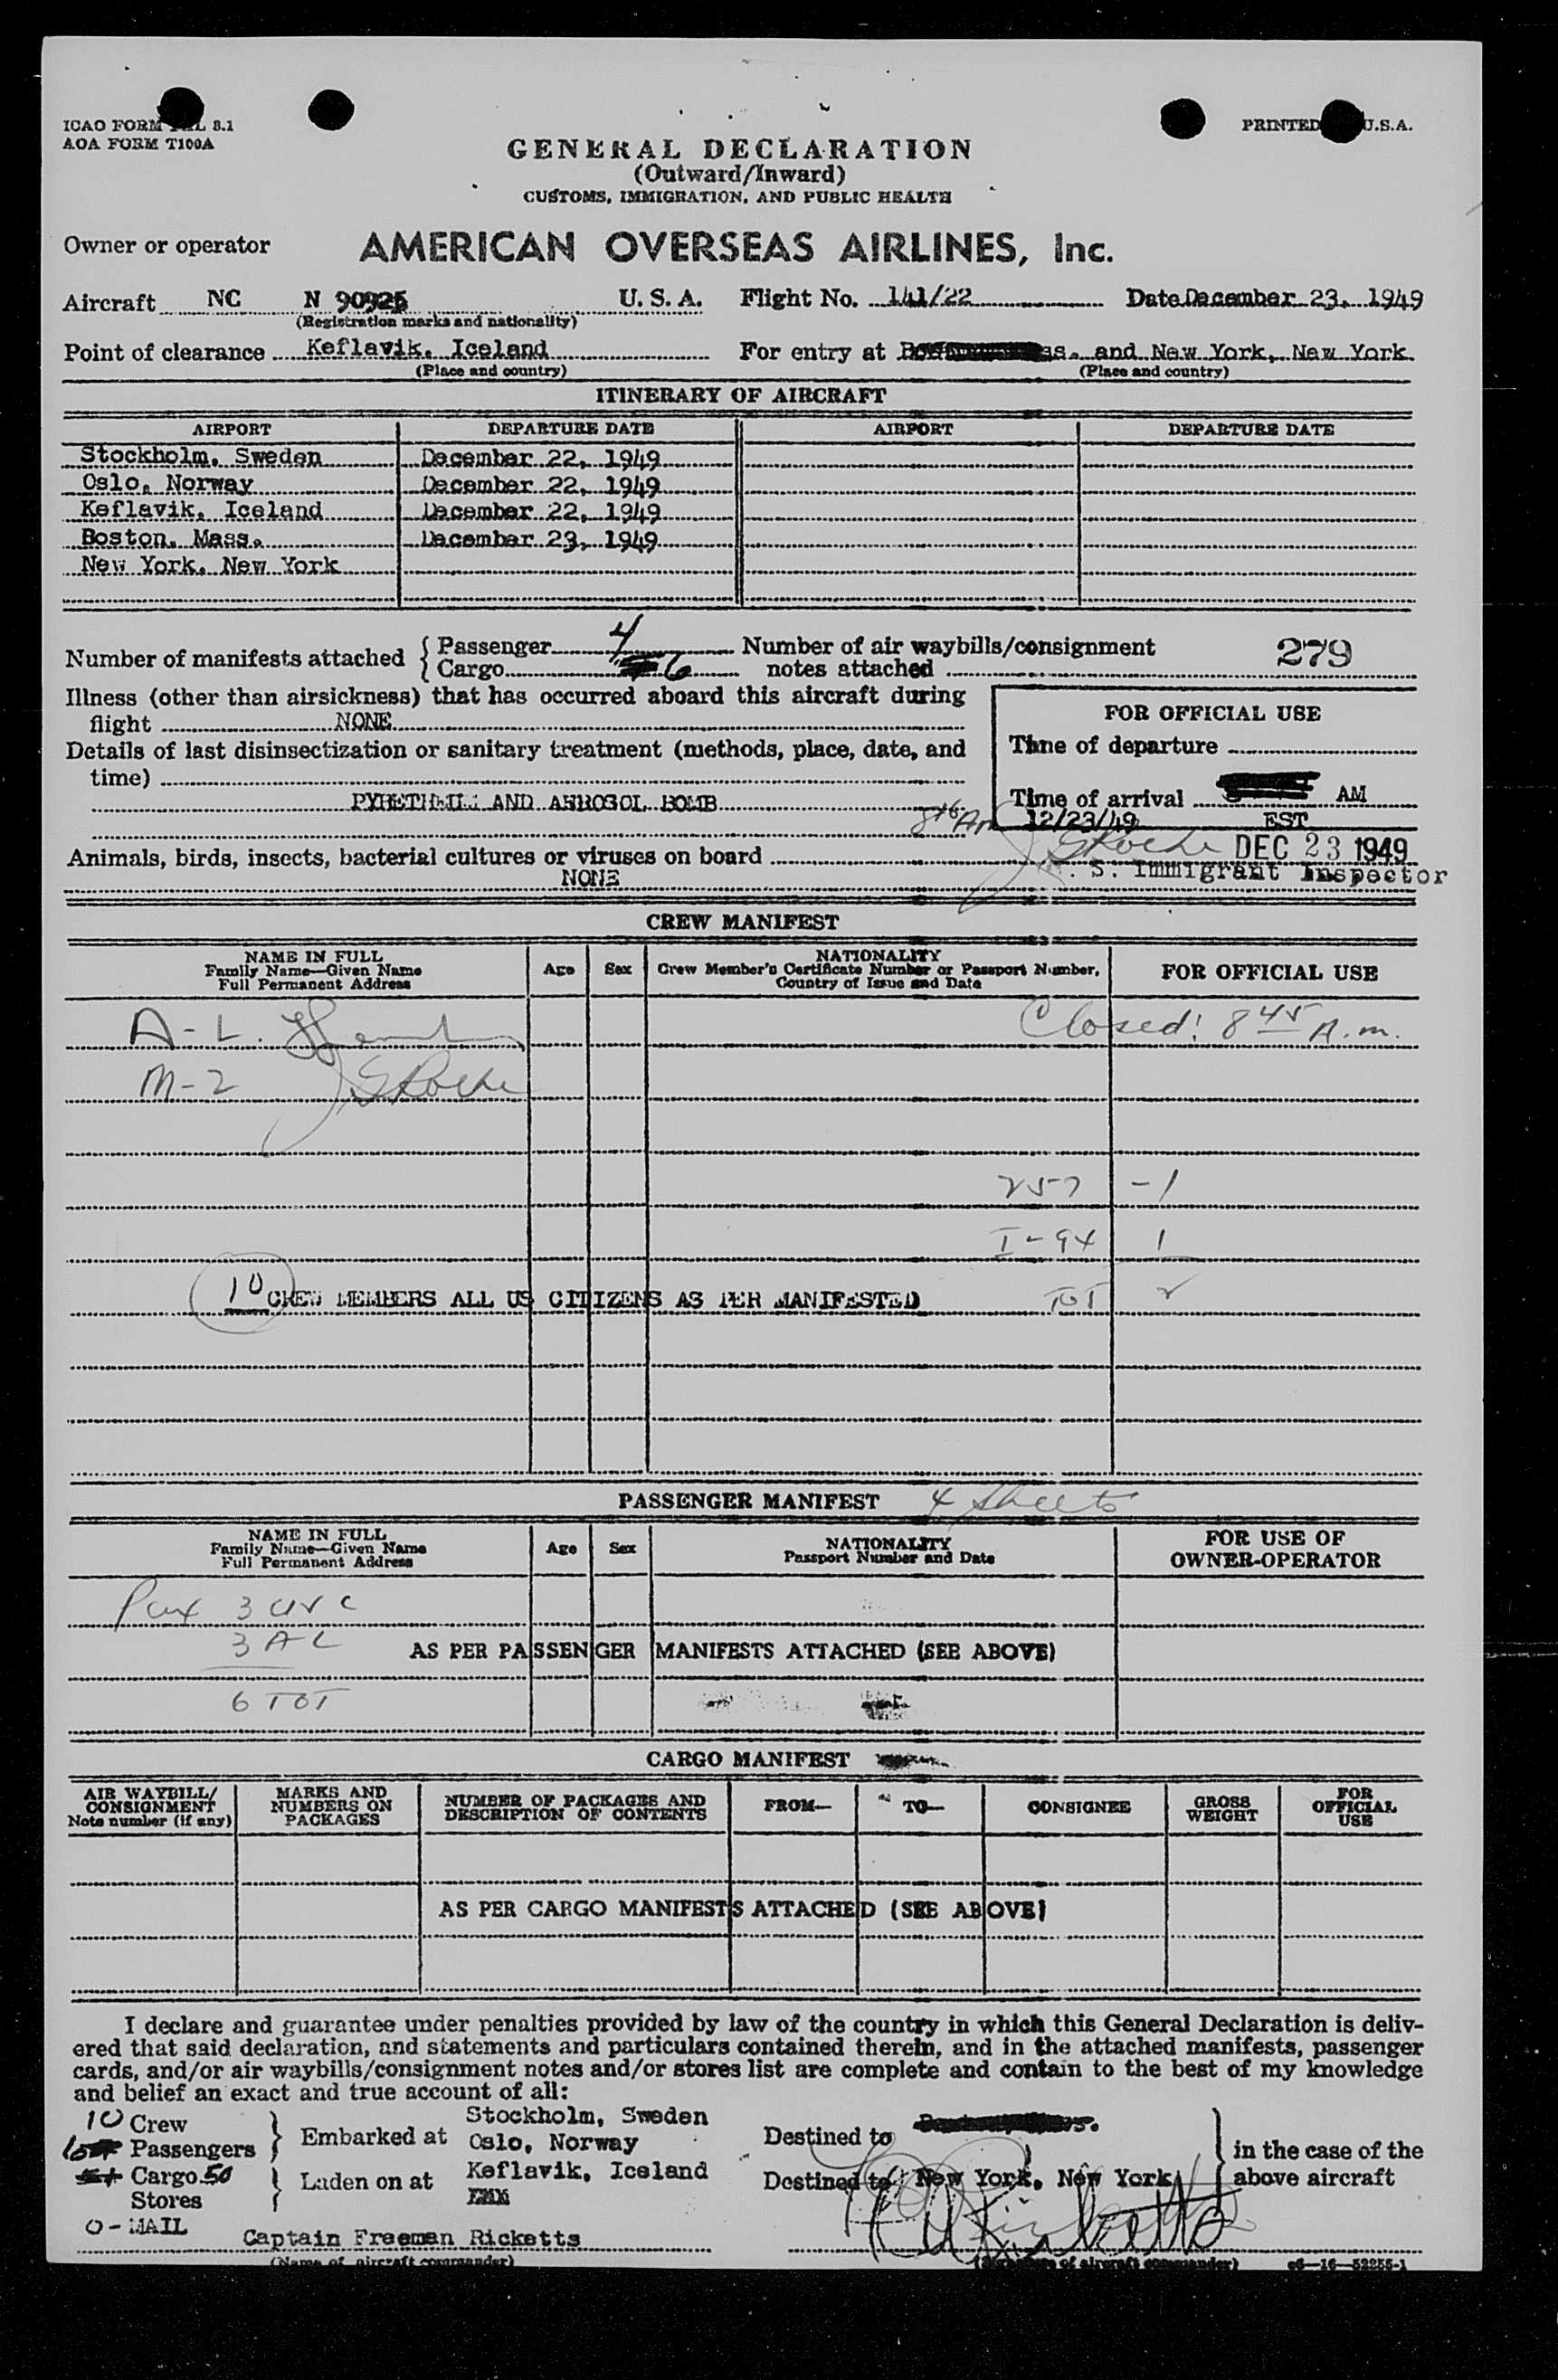 ICAO FORM 8.1
AOA FORM T100A
PRINTED U.S.A.
GENERAL DECLARATION
(Outward/Inward)
CUSTOMS, IMMIGRATION, AND PUBLIC HEALTH
Owner or operator AMERICAN OVERSEAS AIRLINES, Inc.
Aircraft NC N 90925 U. S. A. Flight No. 141/22 Date December 23, 1949
(Registration marks and nationality)
Point of clearance Keflavik, Iceland For entry at and New York, New York
(Place and country) (Place and country)
ITINERARY OF AIRCRAFT
AIRPORT DEPARTURE DATE AIRPORT DEPARTURE DATE
Stockholm, Sweden December 22, 1949
Oslo, Norway December 22, 1949
Keflavik, Iceland December 22, 1949
Boston, Mass. December 23, 1949
New York, New York
Number of manifests attached { Passenger 4 Number of air waybills/consignment 279
Cargo 6 notes attached
Illness (other than airsickness) that has occurred aboard this aircraft during
flight NONE
FOR OFFICIAL USE
Details of last disinsectization or sanitary treatment (methods, place, date, and
time)
Time of departure
PYRETHRUM AND AEROSOL BOMB
Time of arrival AM
8 16 Am 12/23/49 EST
Animals, birds, insects, bacterial cultures or viruses on board
NONE
JGRoche DEC 23 1949
S. Immigrant Inspector
CREW MANIFEST
NAME IN FULL
Family Name—Given Name
Full Permanent Address
Age Sex
NATIONALITY
Crew Member's Certificate Number or Passport Number,
Country of Issue and Date
FOR OFFICIAL USE
A-L. Closed! 8 45 A.m.
M-2 JGRoche
257 -1
I-94 1
10 CREW MEMBERS ALL US CITIZENS AS PER MANIFESTED TOT 2
PASSENGER MANIFEST 4 sheets
NAME IN FULL
Family Name—Given Name
Full Permanent Address
Age Sex
NATIONALITY
Passport Number and Date
FOR USE OF
OWNER-OPERATOR
Pax 3 USC
3 AL AS PER PASSENGER MANIFESTS ATTACHED (SEE ABOVE)
6 TOT
CARGO MANIFEST
AIR WAYBILL/
CONSIGNMENT
Note number (if any)
MARKS AND
NUMBERS ON
PACKAGES
NUMBER OF PACKAGES AND
DESCRIPTION OF CONTENTS
FROM— TO— CONSIGNEE
GROSS
WEIGHT
FOR
OFFICIAL
USE
AS PER CARGO MANIFESTS ATTACHED (SEE ABOVE)
I declare and guarantee under penalties provided by law of the country in which this General Declaration is deliv-
ered that said declaration, and statements and particulars contained therein, and in the attached manifests, passenger
cards, and/or air waybills/consignment notes and/or stores list are complete and contain to the best of my knowledge
and belief an exact and true account of all:
10 Crew
6 Passengers
Cargo 50
Stores
0 - MAIL
Embarked at
Laden on at
Stockholm, Sweden
Oslo, Norway
Keflavik, Iceland
Destined to
Destined to New York, New York
in the case of the
above aircraft
Captain Freeman Ricketts
(Name of aircraft commander) (Signature of aircraft commander) c6—16—52255-1